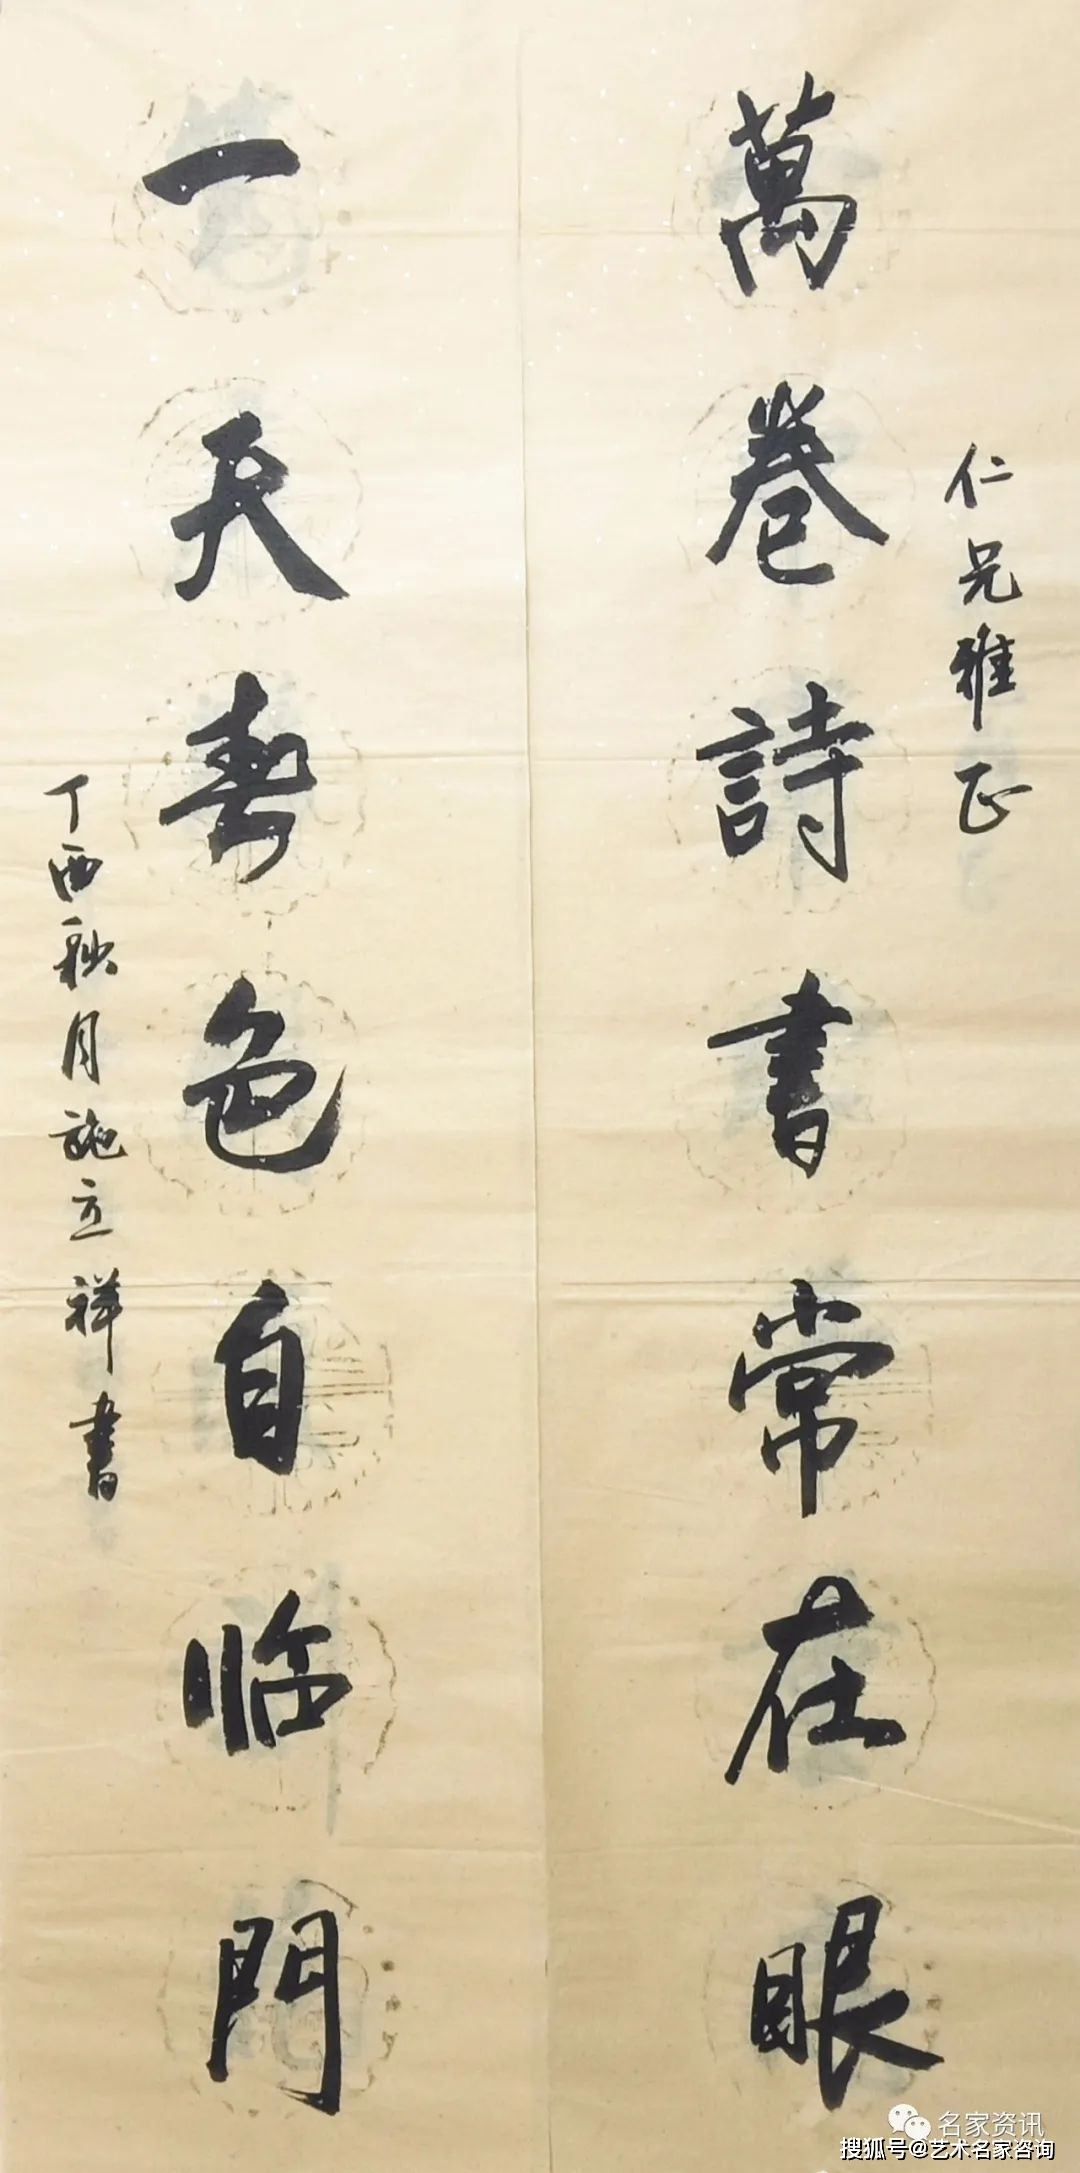 仁兄雅正
萬卷詩書常在眼
一天春色自临門
丁酉秋月施立祥書
名家资讯
搜狐号@艺术名家咨询